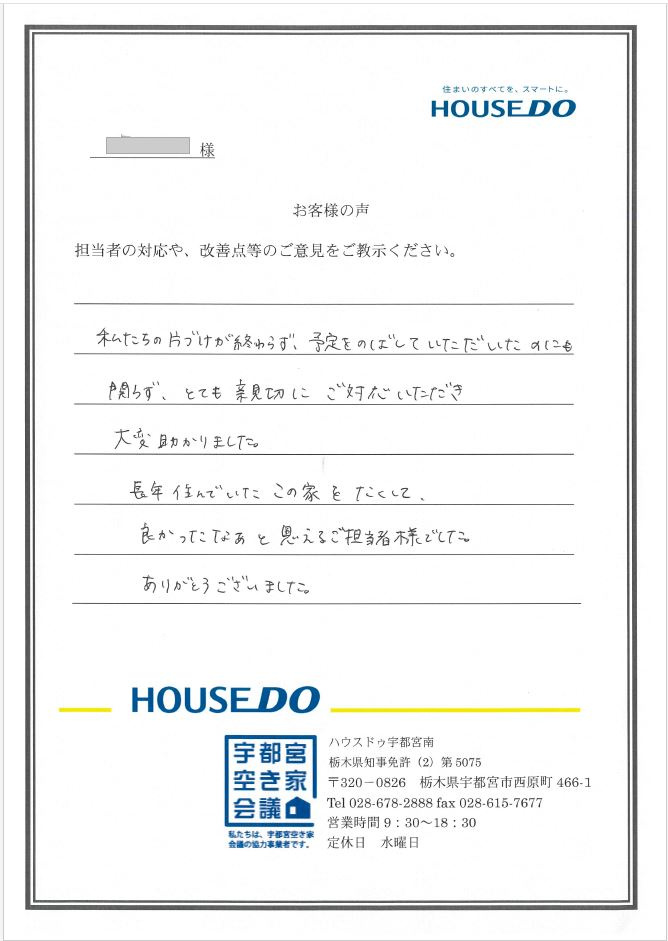 住まいのすべてを、スマートに。
HOUSEDO
様
お客様の声
担当者の対応や、改善点等のご意見をご教示ください。
私たちの片づけが終わらず、予定をのばしていただいたのにも
関らず、とても親切にご対応いただき
大変助かりました。
長年住んでいたこの家をたくして、
良かったなぁと思えるご担当者様でした。
ありがとうございました。
HOUSEDO
宇都宮
空き家
会議
私たちは、宇都宮空き家
会議の協力事業者です。
ハウスドゥ宇都宮南
栃木県知事免許（2）第5075
〒320－0826　栃木県宇都宮市西原町 466-1
Tel 028-678-2888 fax 028-615-7677
営業時間 9：30～18：30
定休日　水曜日